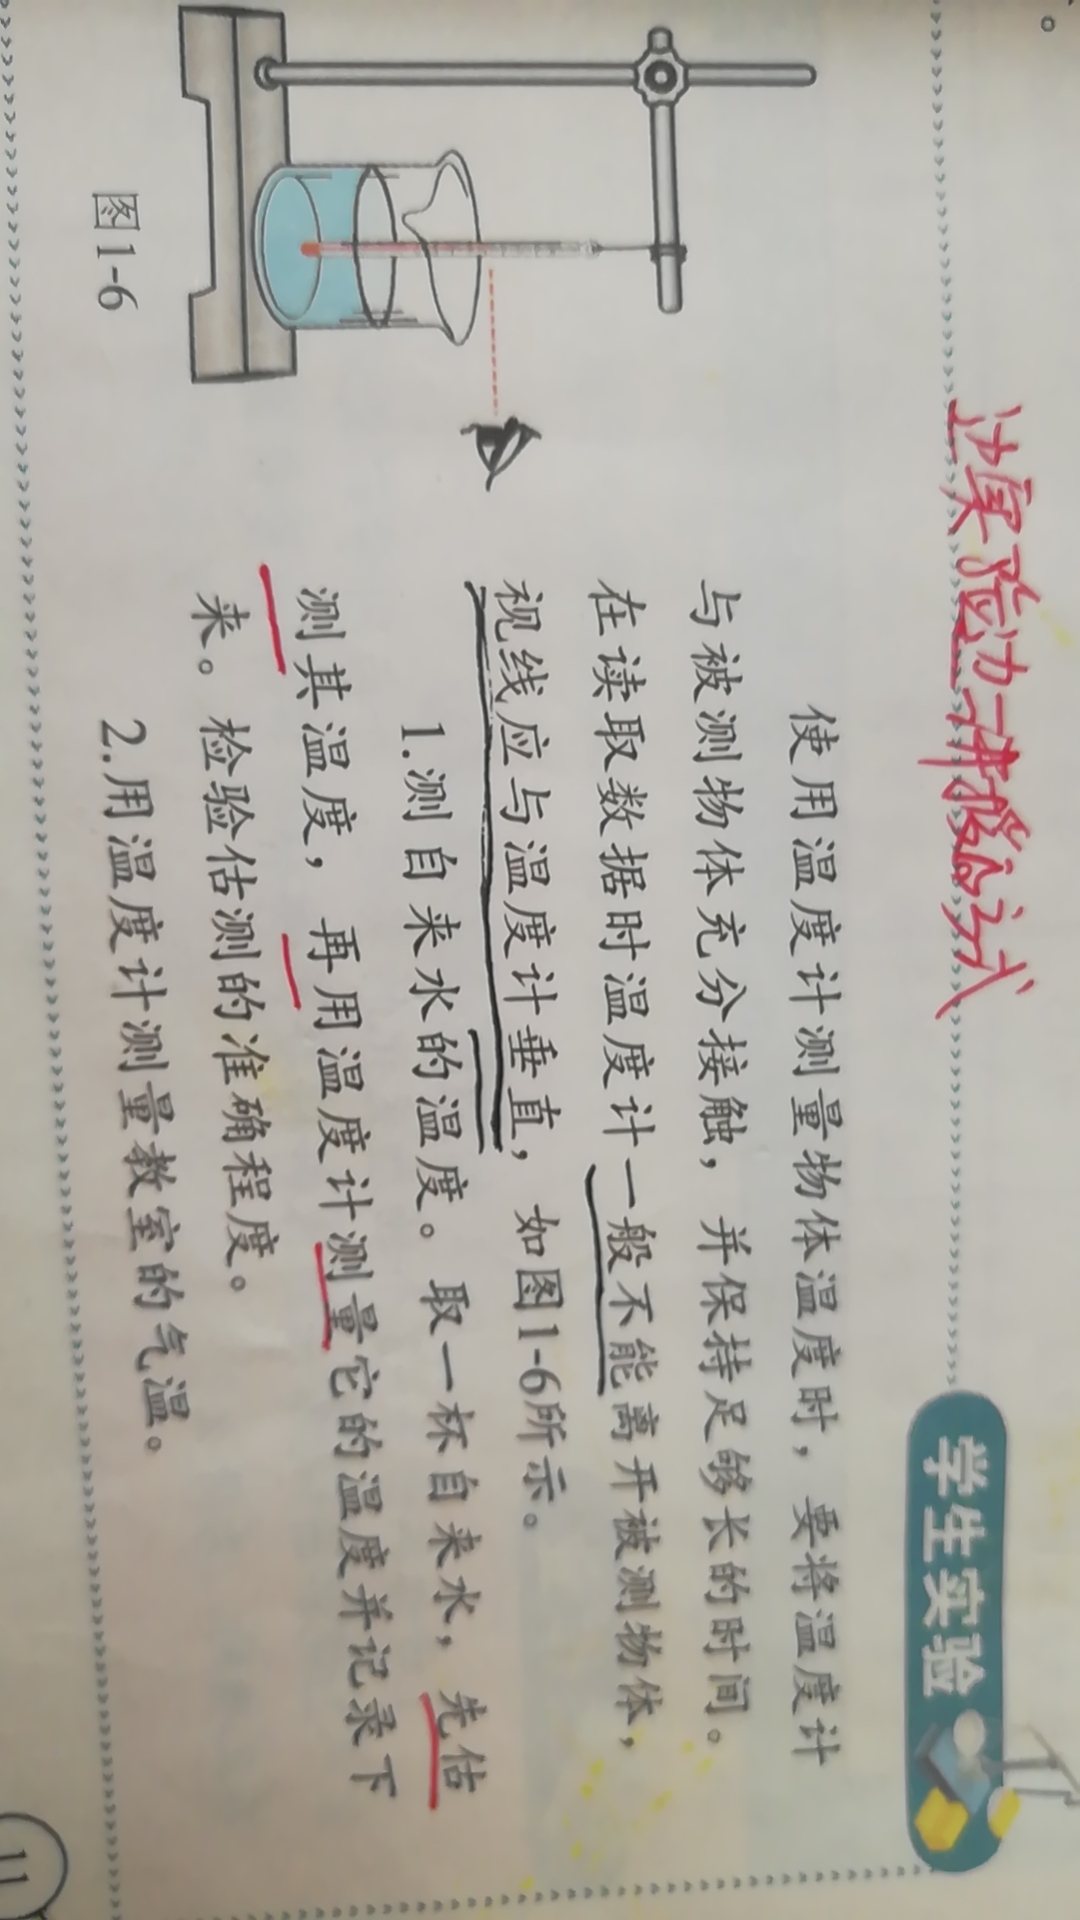 边实验边讲授方式
学生实验
使用温度计测量物体温度时，要将温度计
与被测物体充分接触，并保持足够长的时间。
在读取数据时温度计一般不能离开被测物体，
视线应与温度计垂直，如图1-6所示。
1.测自来水的温度。取一杯自来水，先估
测其温度，再用温度计测量它的温度并记录下
来。检验估测的准确程度。
2.用温度计测量教室的气温。
图1-6
11